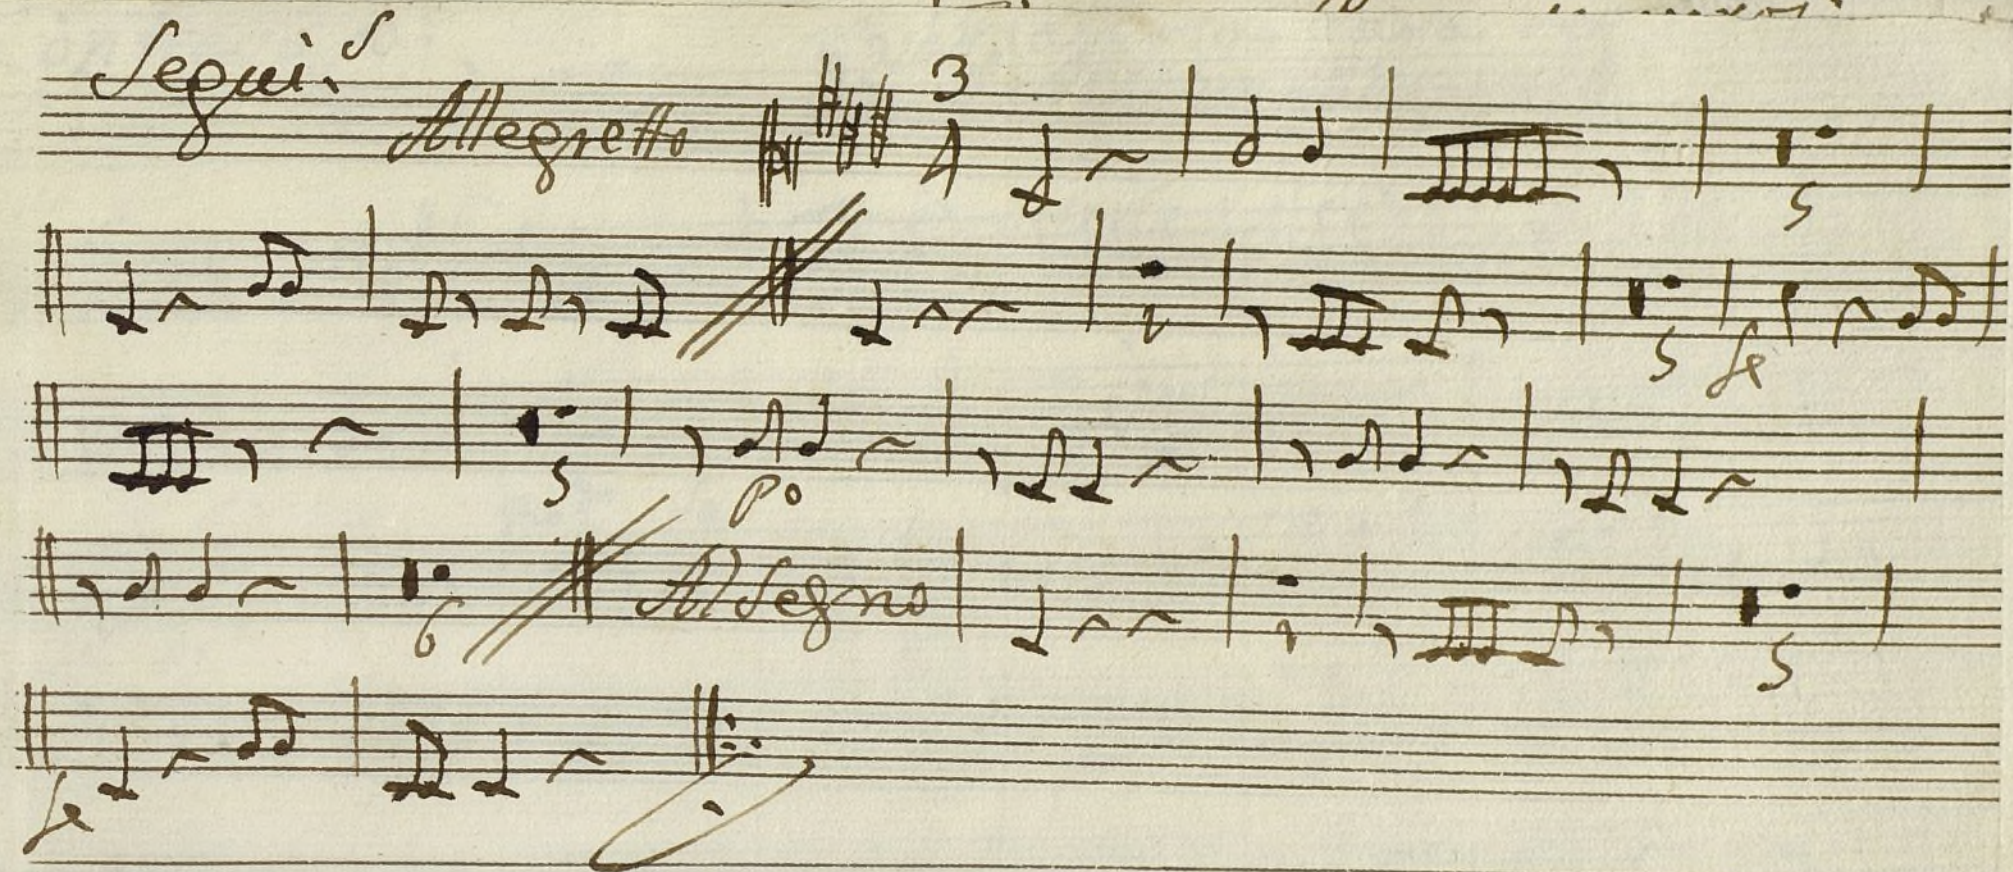 Segui.s
Allegretto 3
4
5
1 5 fe
5 po
6 Al Segno 1 5
fe